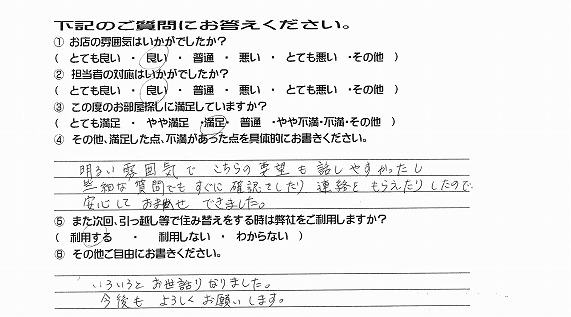 下記のご質問にお答えください。
① お店の雰囲気はいかがでしたか?
( とても良い ・ 良い ・ 普通 ・ 悪い ・ とても悪い ・その他 )
② 担当者の対応はいかがでしたか?
( とても良い ・ 良い ・ 普通 ・ 悪い ・ とても悪い ・その他 )
③ この度のお部屋探しに満足していますか?
( とても満足 ・ やや満足 ・満足・ 普通 ・やや不満・不満・その他 )
④ その他、満足した点、不満があった点を具体的にお書きください。
明るい雰囲気で こちらの要望も話しやすかったし
些細な質問でもすぐに確認をしたり 連絡をもらえたりしたので、
安心して お まかせ できました。
⑤ また次回、引っ越し等で住み替えをする時は弊社をご利用しますか?
( 利用する ・ 利用しない ・ わからない )
⑥ その他ご自由にお書きください。
いろいろと お世話になりました。
今後も よろしく お願いします。